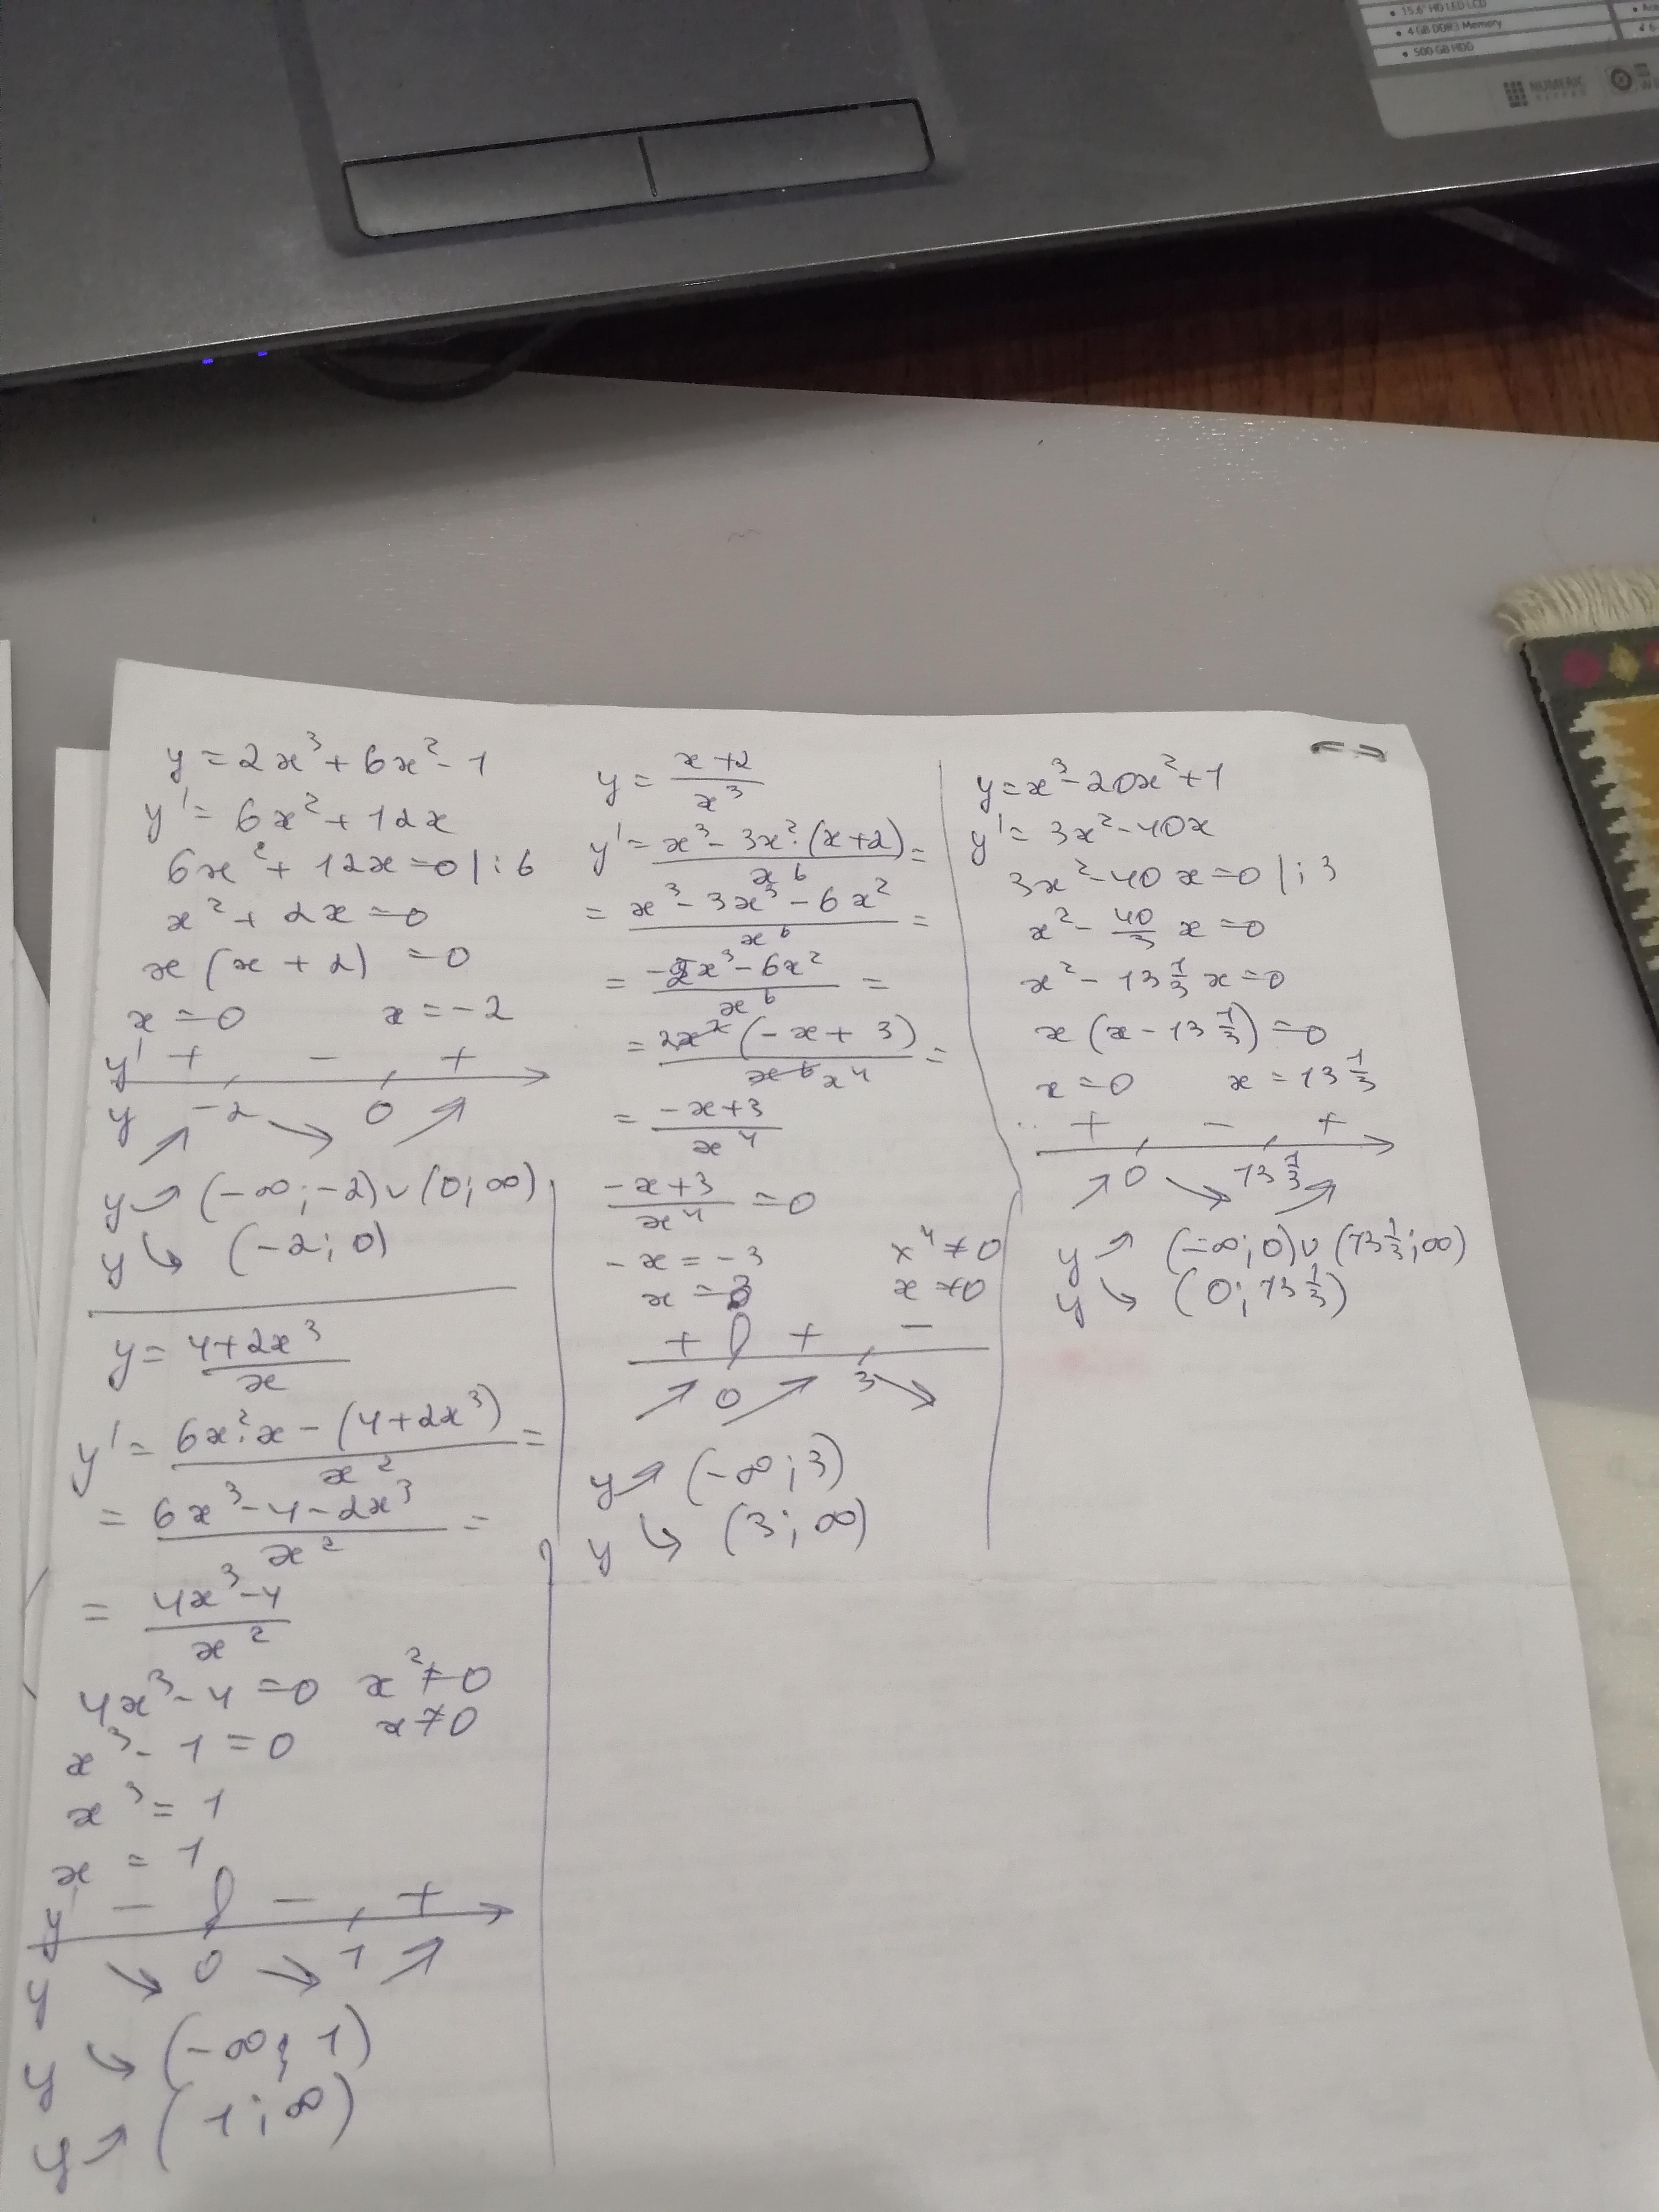 15.6" HD LED LCD
4 GB DDR3 Memory
500 GB HDD
NUMERIC
y = 2x³ + 6x² - 1
y' = 6x² + 12x
6x² + 12x = 0 |:6
x² + 2x = 0
x (x + 2) = 0
x = 0 x = -2
y' + - +
y -2 0
y ↗ (-∞; -2) ∪ (0; ∞)
y ↘ (-2; 0)
y = (4+2x³)/x
y' = (6x²·x - (4+2x³))/x² =
= (6x³ - 4 - 2x³)/x² =
= (4x³ - 4)/x²
4x³ - 4 = 0 x² ≠ 0
x³ - 1 = 0 x ≠ 0
x³ = 1
x = 1
y' - - +
y ↘ 0 ↘ 1 ↗
y ↘ (-∞; 1)
y ↗ (1; ∞)
y = (x+2)/x³
y' = (x³ - 3x²·(x+2))/x⁶ =
= (x³ - 3x³ - 6x²)/x⁶ =
= (-2x³ - 6x²)/x⁶ =
= 2x²(-x + 3)/x⁶ x⁴ =
= (-x+3)/x⁴
(-x+3)/x⁴ = 0
-x = -3 x⁴ ≠ 0
x = 3 x ≠ 0
+ + -
↗ 0 ↗ 3 ↘
y ↗ (-∞; 3)
y ↘ (3; ∞)
y = x³ - 20x² + 1
y' = 3x² - 40x
3x² - 40x = 0 |:3
x² - 40/3 x = 0
x² - 13 1/3 x = 0
x (x - 13 1/3) = 0
x = 0 x = 13 1/3
+ - +
↗ 0 ↘ 13 1/3 ↗
y ↗ (-∞; 0) ∪ (13 1/3; ∞)
y ↘ (0; 13 1/3)